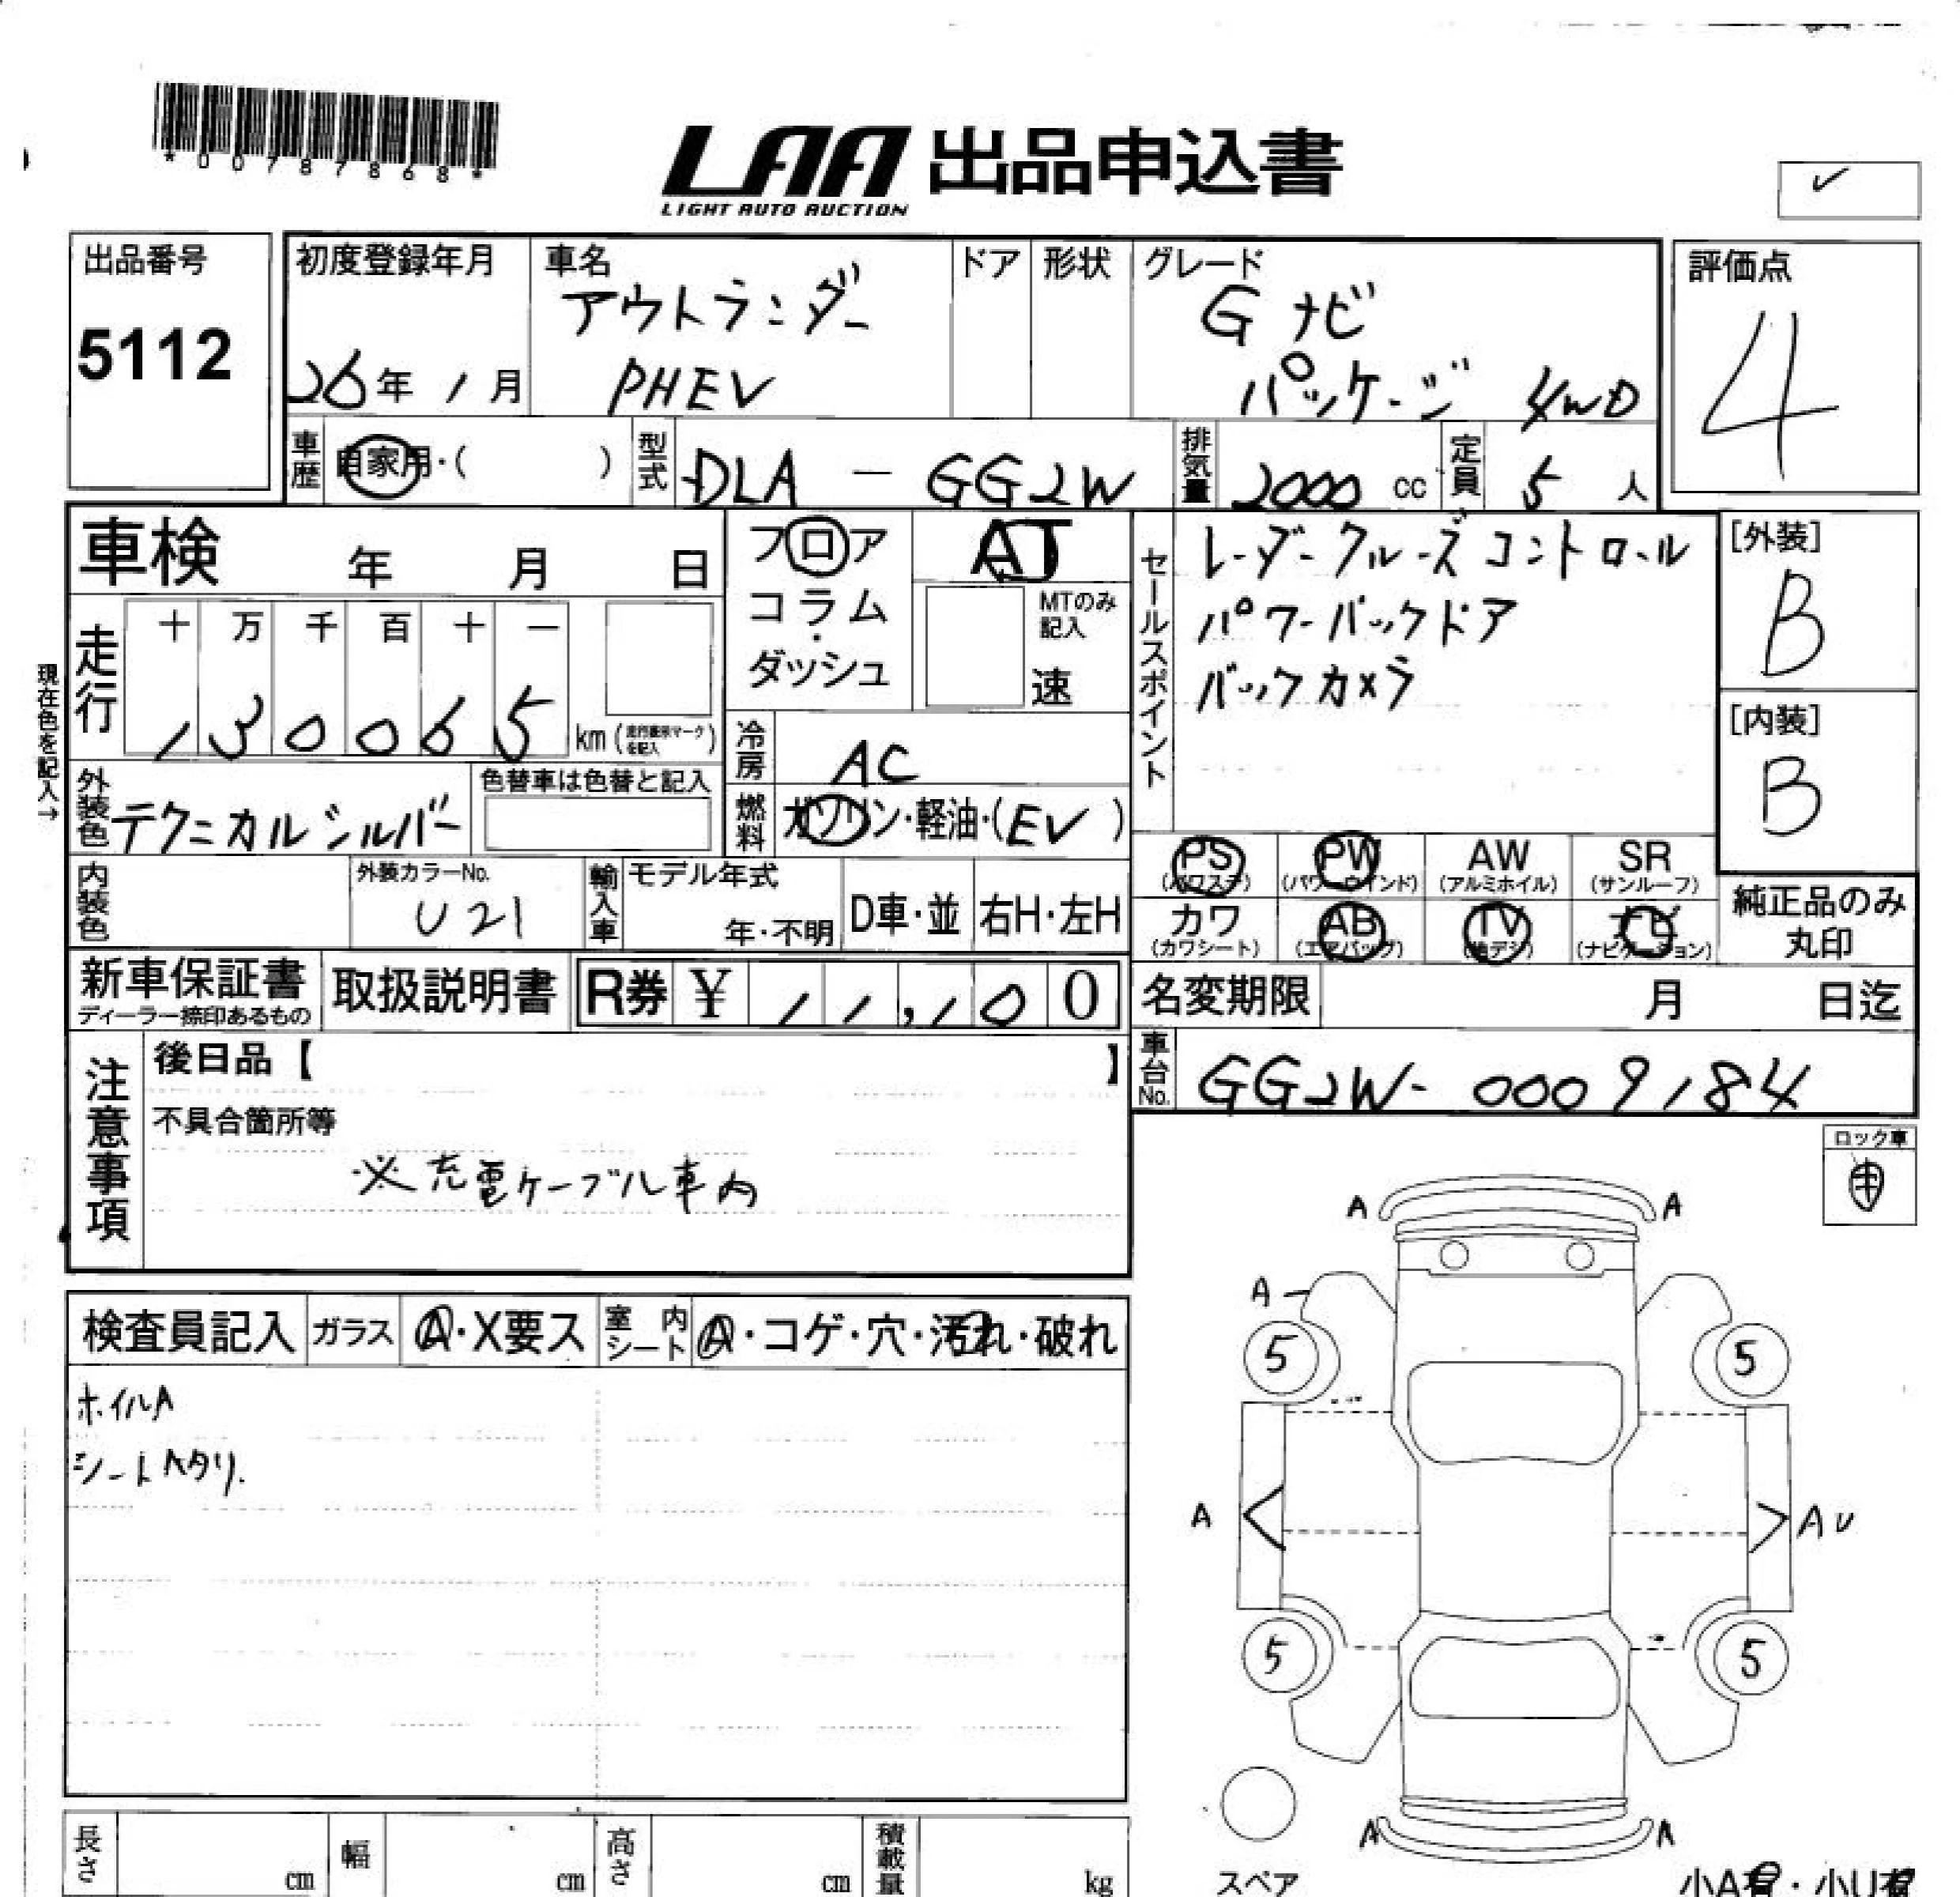 *00787868*
LAA 出品申込書
LIGHT AUTO AUCTION
✓
出品番号
5112
初度登録年月
26年 1月
車名
アウトランダー
PHEV
ドア
形状
グレード
G ナビ
パッケージ 4WD
評価点
4
車歴 自家用・( )
型式 DLA - GG2W
排気量 2000 cc
定員 5 人
車検 年 月 日
フロア
コラム
・
ダッシュ
AT
MTのみ
記入
速
セールスポイント
レーダークルーズコントロール
パワーバックドア
バックカメラ
[外装]
B
[内装]
B
現在色を記入→
走行
十 万 千 百 十 一
1 3 0 0 6 5 km (走行表示マークを記入)
冷房 AC
外装色 テクニカルシルバー
色替車は色替と記入
燃料 ガソリン・軽油・(EV)
PS (パワステ)
PW (パワーウインド)
AW (アルミホイル)
SR (サンルーフ)
カワ (カワシート)
AB (エアバッグ)
TV (地デジ)
ナビ (ナビゲーション)
純正品のみ
丸印
内装色
外装カラーNo.
U21
輸入車
モデル年式
年・不明
D車・並
右H・左H
新車保証書
ディーラー捺印あるもの
取扱説明書
R券 ¥ 11,100
名変期限 月 日迄
車台No. GG2W-0009184
注意事項
後日品【 】
不具合箇所等
※充電ケーブル車内
ロック車
検査員記入
ガラス A・X要ス
室内シート A・コゲ・穴・汚れ・破れ
ホイルA
シートヘタリ.
A A
A
5 5
A AU
5 5
A A
スペア
長さ cm
幅 cm
高さ cm
積載量 kg
小A有・小U有